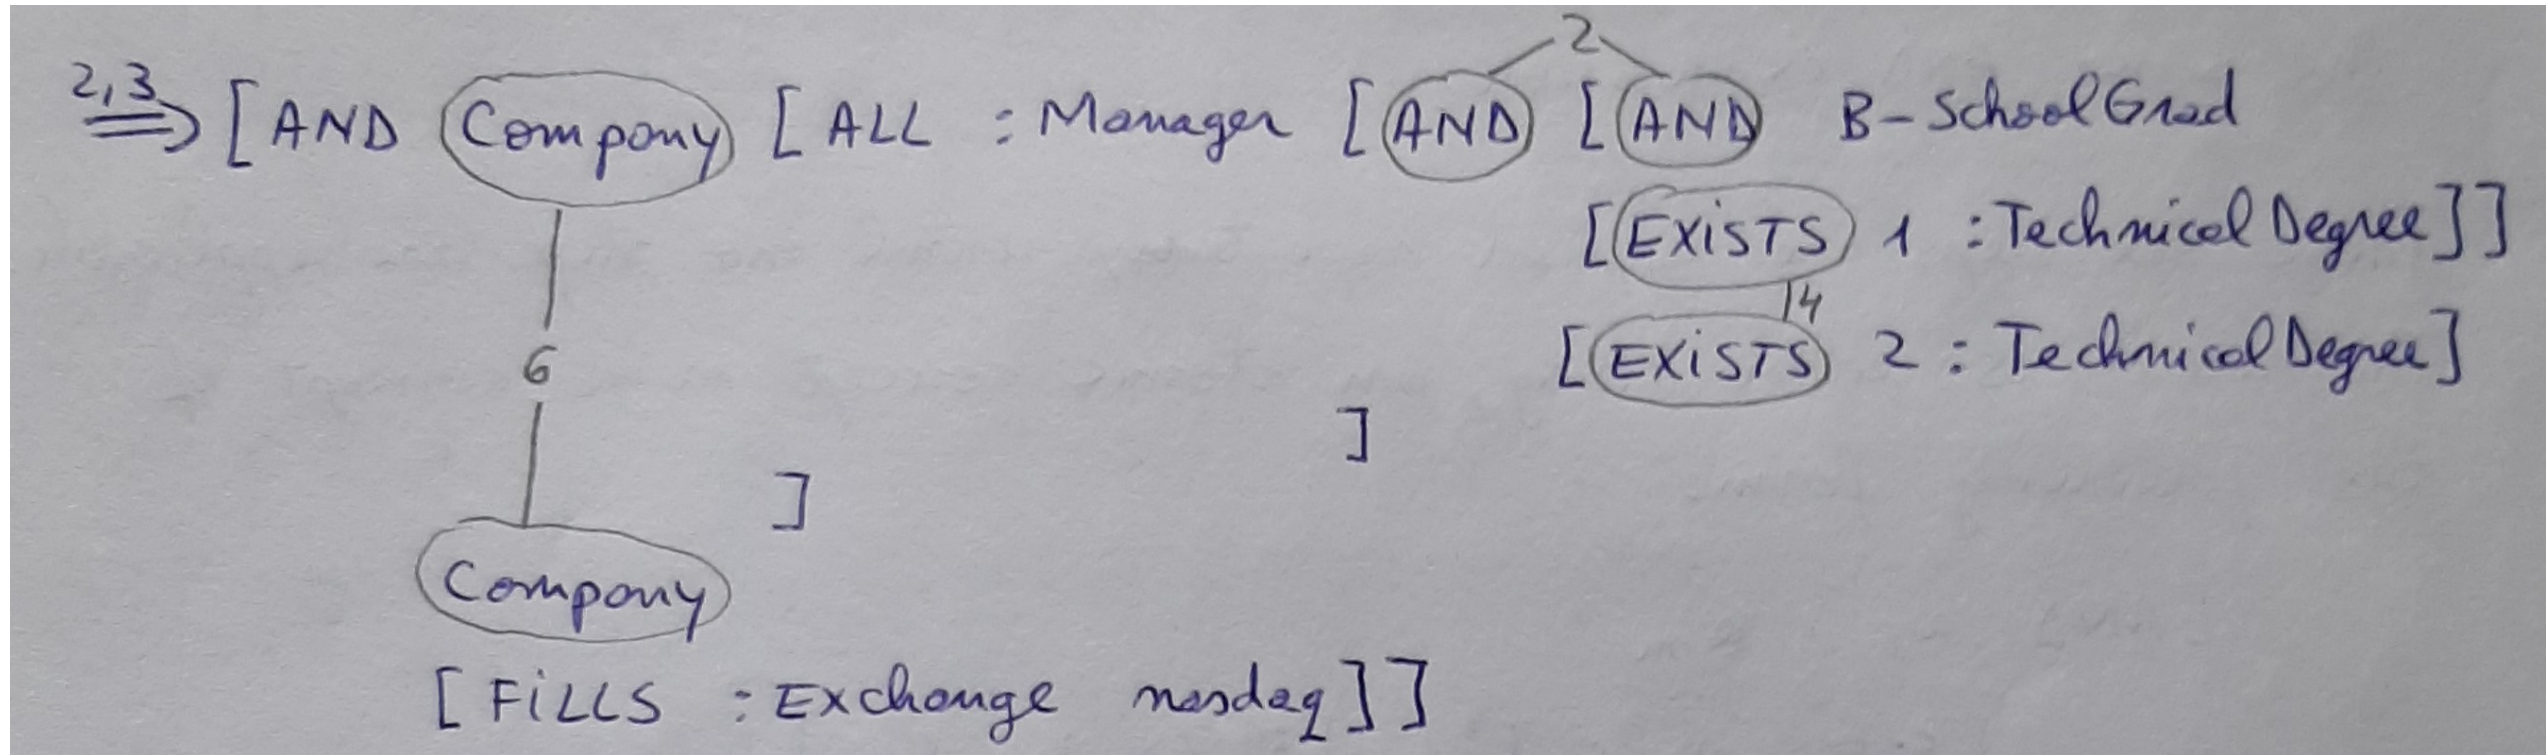 2
2,3 ⇒ [AND Company [ALL :Manager [AND [AND B-SchoolGrad
[EXiSTS 1 :Technical Degree]]
14
[EXiSTS 2 :Technical Degree]
6
]
]
Company
[FiLLS :Exchange nasdaq]]